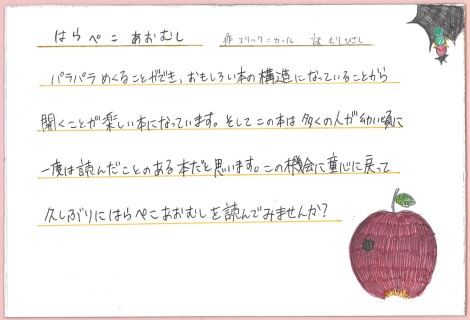 はらぺこ あおむし 作 エリック=カール 訳 もりひさし
パラパラめくることができ、おもしろい本の構造になっていることから
開くことが楽しい本になっています。そしてこの本は多くの人が幼い頃に
一度は読んだことのある本だと思います。この機会に童心に戻って
久しぶりにはらぺこあおむしを読んでみませんか?